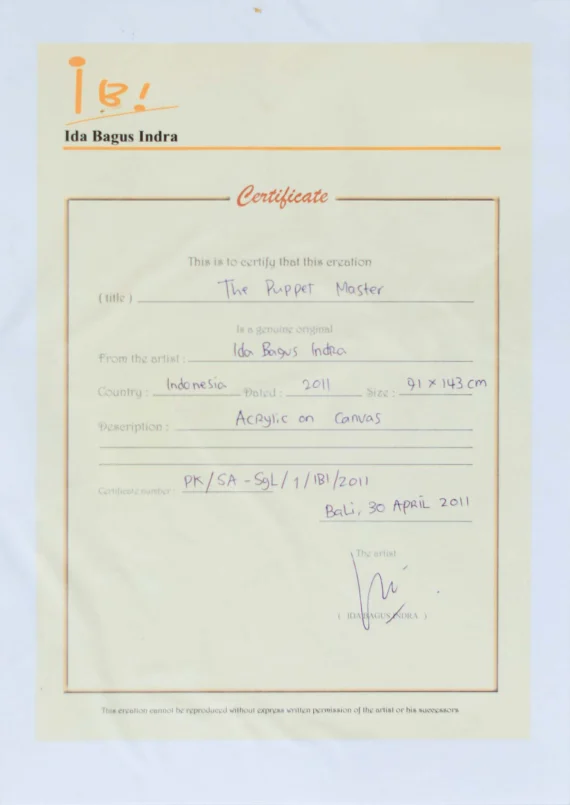 IB!
Ida Bagus Indra
Certificate
This is to certify that this creation
( title ) The Puppet Master
Is a genuine original
From the artist : Ida Bagus Indra
Country : Indonesia Dated : 2011 Size : 91 x 143 cm
Description : Acrylic on Canvas
Certificate number : PK/SA-SgL/1/IBI/2011
Bali, 30 APRIL 2011
The artist
( IDA BAGUS INDRA )
This creation cannot be reproduced without express written permission of the artist or his successors